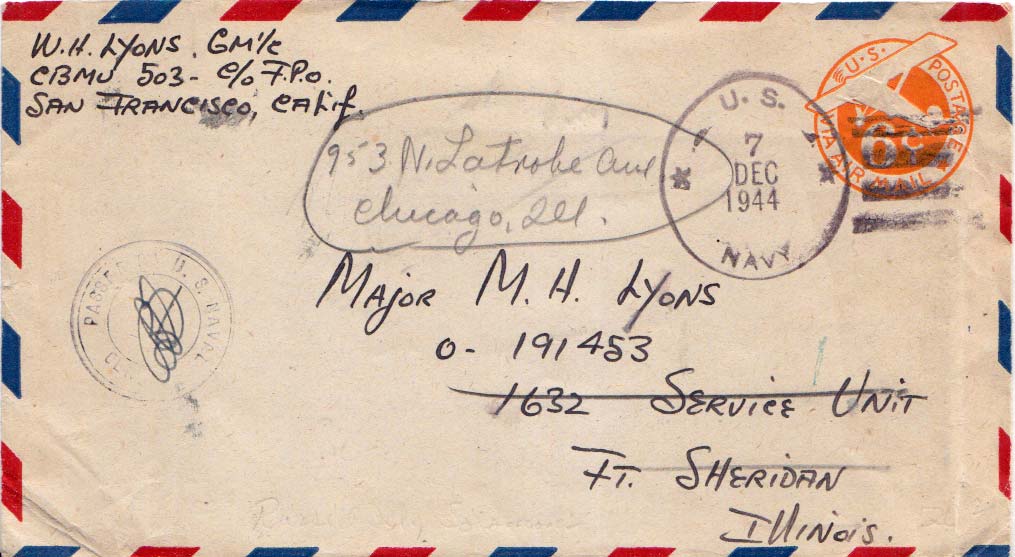 W.H. LYONS. GM1/c
CBMU 503 - c/o F.P.O.
SAN FRANCISCO, CALIF.
U.S. POSTAGE
6¢
VIA AIR MAIL
U. S.
7
DEC
1944
NAVY
953 N. Latrobe Ave
Chicago, Ill.
PASSED BY U. S. NAVAL
MAJOR M. H. LYONS
O- 191453
1632 SERVICE UNIT
FT. SHERIDAN
ILLINOIS.